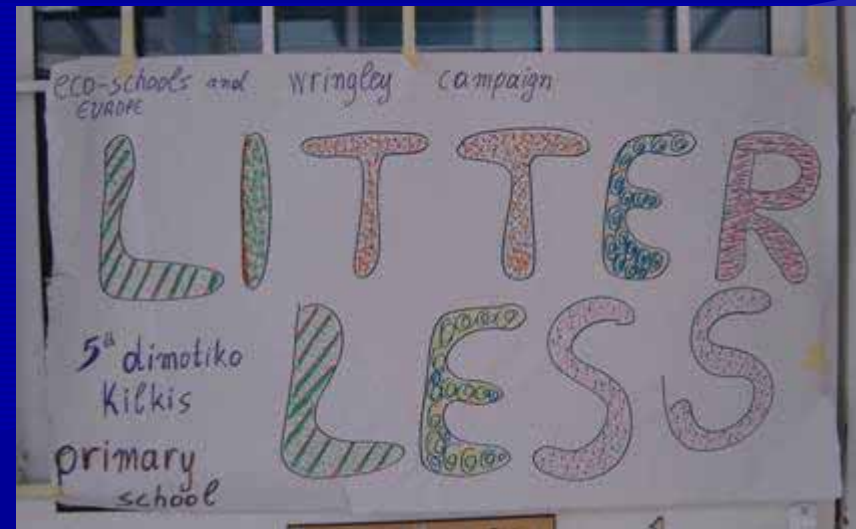 eco-schools and wringley campaign
EUROPE
LITTER
LESS
5ª dimotiko
Kilkis
primary
school